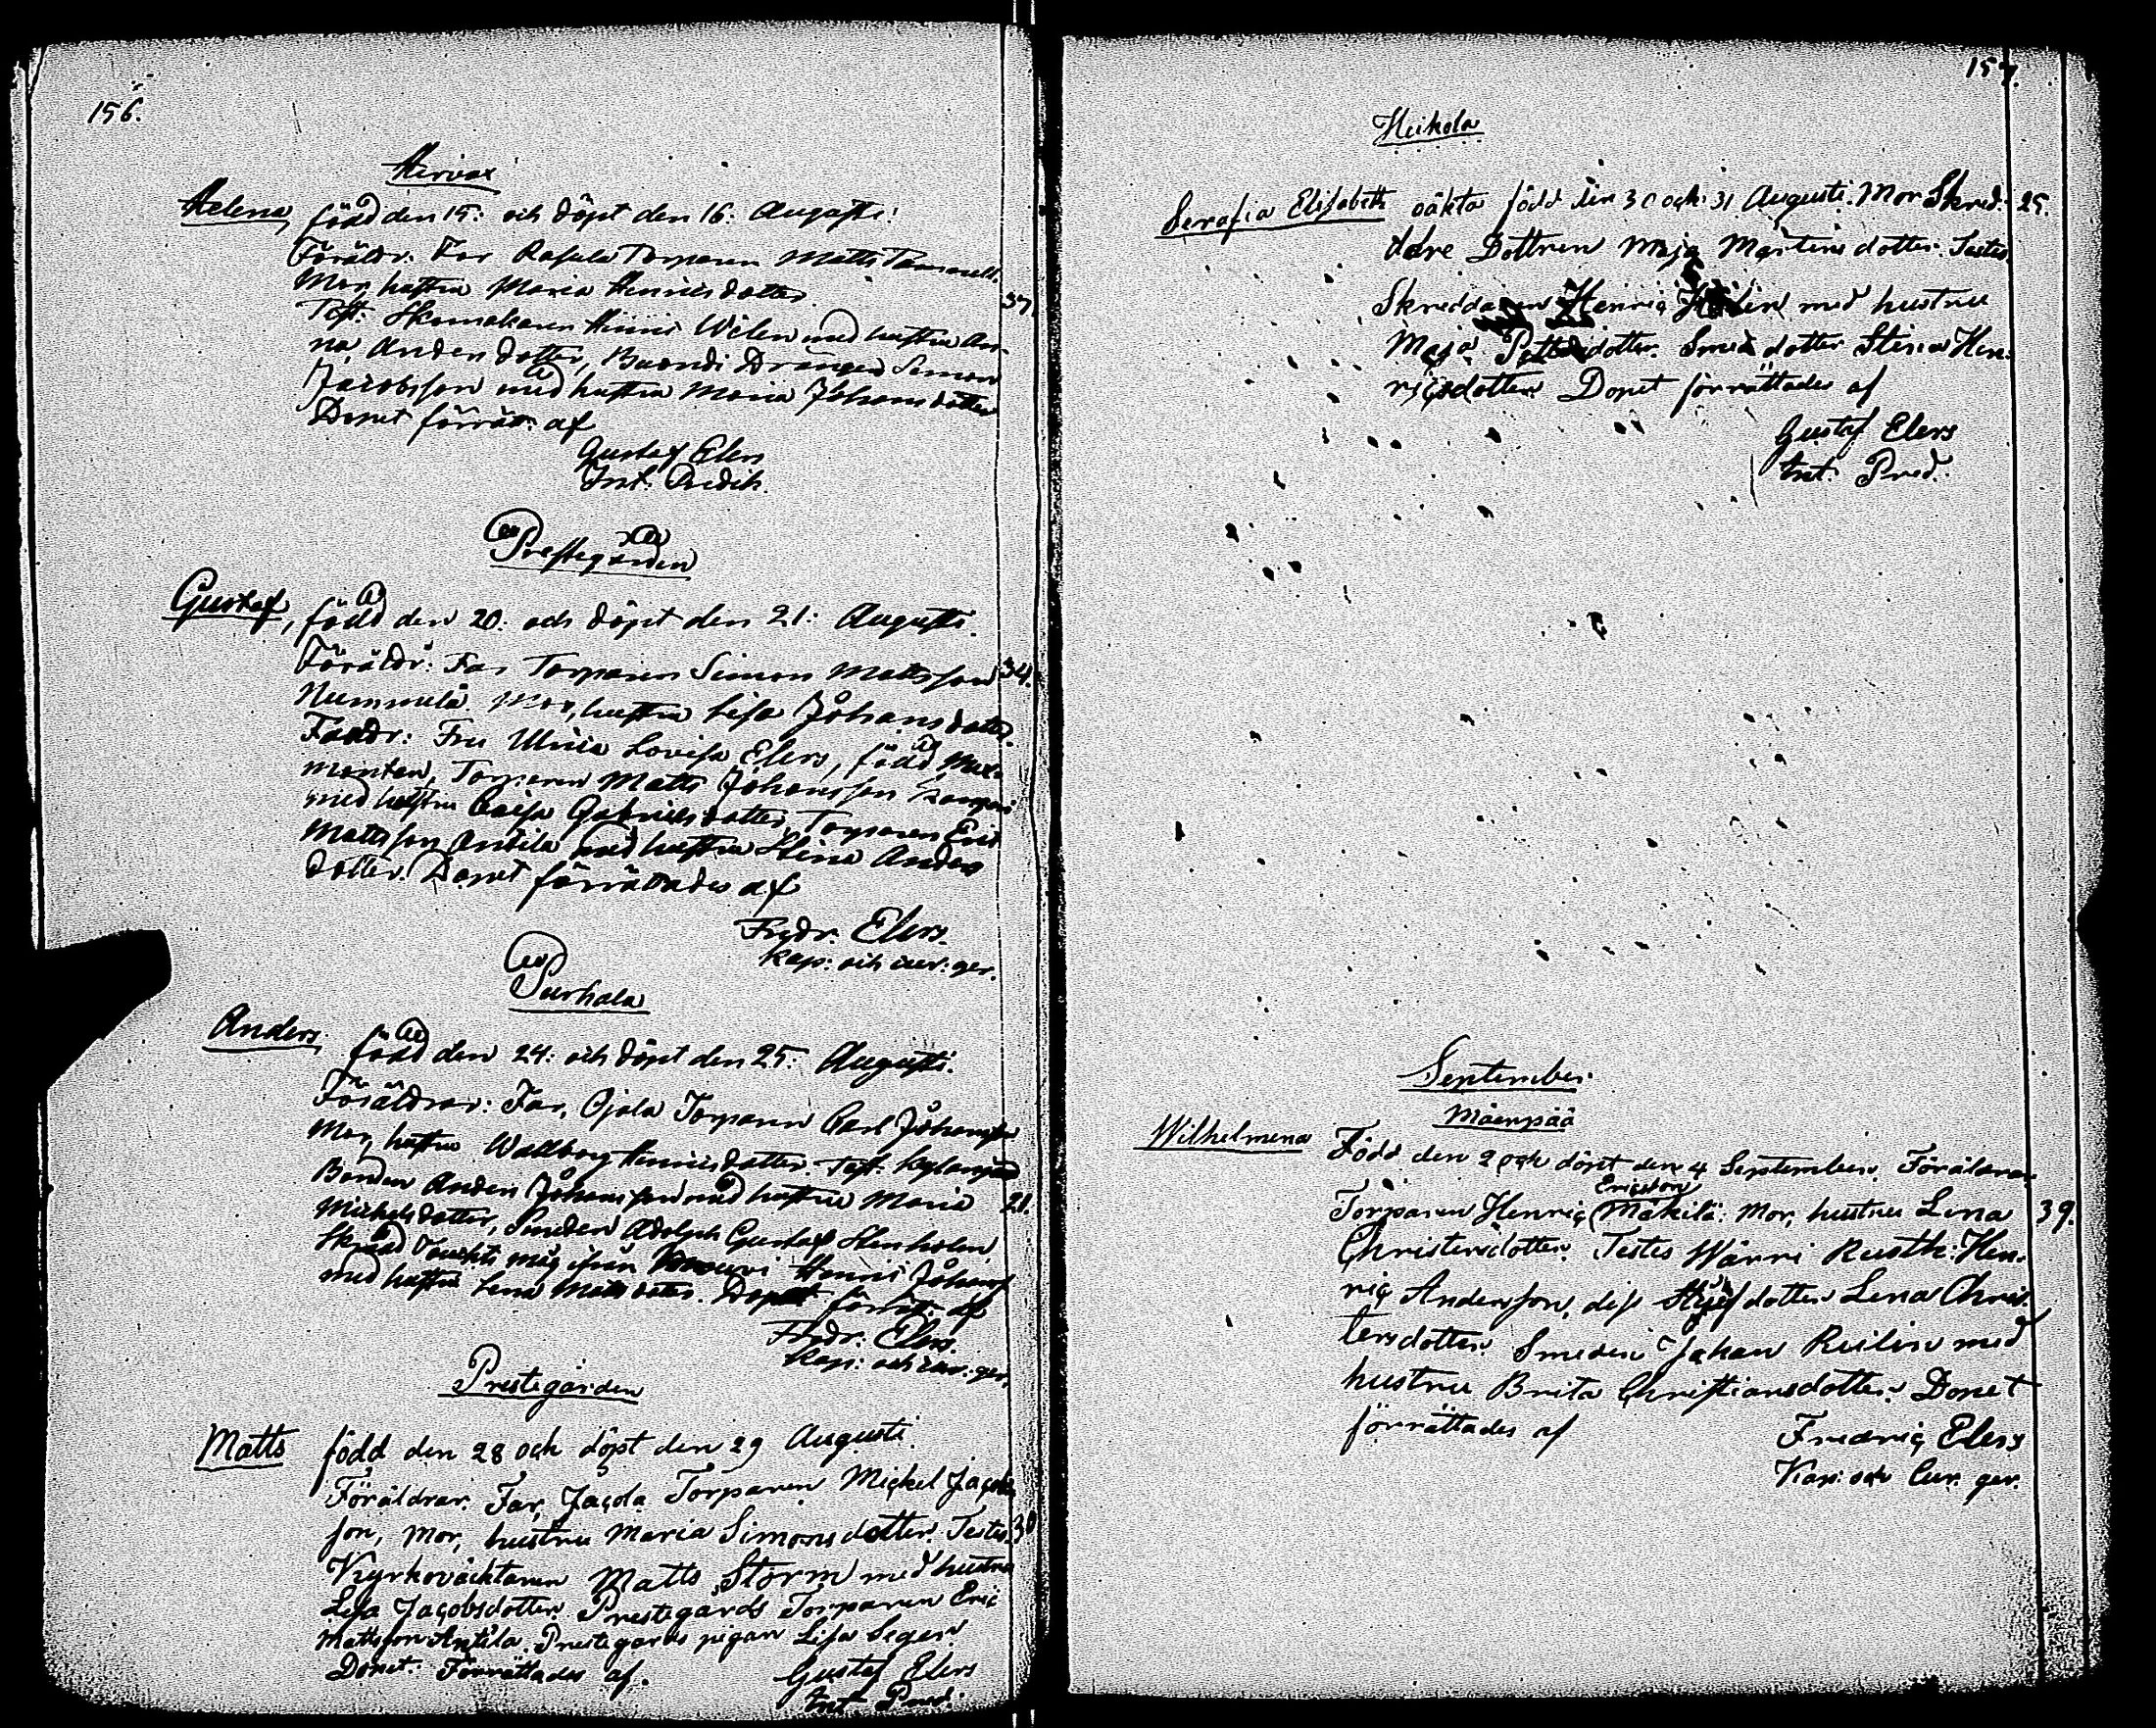 156.
Hirvax
Helena, född den 15: och döpt den 16: Augusti.
Föräldr. Far Torparen Matts
37.
Mor, hustru Maria Henricsdotter
Test: Skomakaren Henric Wilen med hustru An-
na Anders dotter, Drängen Simon
Jacobsson med hustru Maria Johans dotter
Dopet förrät: af
Gustaf Elers
Int. Predik.
Prestegården
Gustaf, född den 20: och döpt den 21: Augusti.
Föräldr: Far Torparen Simon Mattsson
34.
Nummela Mor, hustru Lisa Johansdotter.
Faddr: Fru Ulrica Lovisa Elers, född
Torparen Matts Johansson
med hustru Caisa Gabrielsdotter, Torparen Eric
Mattsson Antila med hustru Stina Anders
dotter. Dopet förrättades af
Fredr. Elers.
Kap: och cur: ger.
Purhala
Anders, född den 24: och döpt den 25: Augusti.
Föräldrar: Far, Ojala Torparen Carl Johansson
Mor, hustru Wallborg Henricsdotter. Test:
Bonden Anders Johansson med hustru Maria
21.
Michelsdotter, Smeden Adolph Gustaf Stenholm
Henric Johans
med hustru Lena Mattsdotter. Dopet förrätt: af
Fredr. Elers.
Kap: och cur: ger.
Prestegården
Matts född den 28 och döpt den 29 Augusti.
Föräldrar. Far, Jacola Torparen Mickel Jacobs
son, Mor, hustru Maria Simonsdotter. Testes
30
Kyrkovächtaren Matts Storm med hustru
Lisa Jacobsdotter. Prestegårds Torparen Eric
Mattsson Antila. Prestegårds pigan Lisa Segers
Dopet. Förrättades af.
Gustaf Elers
Int. Pred.
157.
Heikola
Serafia Elisabeth oäkta född den 30 och 31 Augusti. Mor Skred:
25.
dare Dottren Maja Martins dotter. Testes
Skreddaren Henric med hustru
Maja dotter. Smed dotter Stina Hen:
ricsdotter. Dopet förrättades af
Gustaf Elers
Int. Pred.
September.
Mäenpää
Wilhelmena Född den 2 och döpt den 4 September. Föräldrar
Ericsson
Torparen Henric Mäkilä: Mor, hustru Lena
39.
Christersdotter. Testes Wärri Rusth: Hen-
ric Andersson, dess Styf dotter Lena Chris-
tersdotter. Smeden Johan Reilin med
hustru Brita Christiansdotter. Dopet
förrättades af
Fredric Elers
Kap: och Cur. ger.